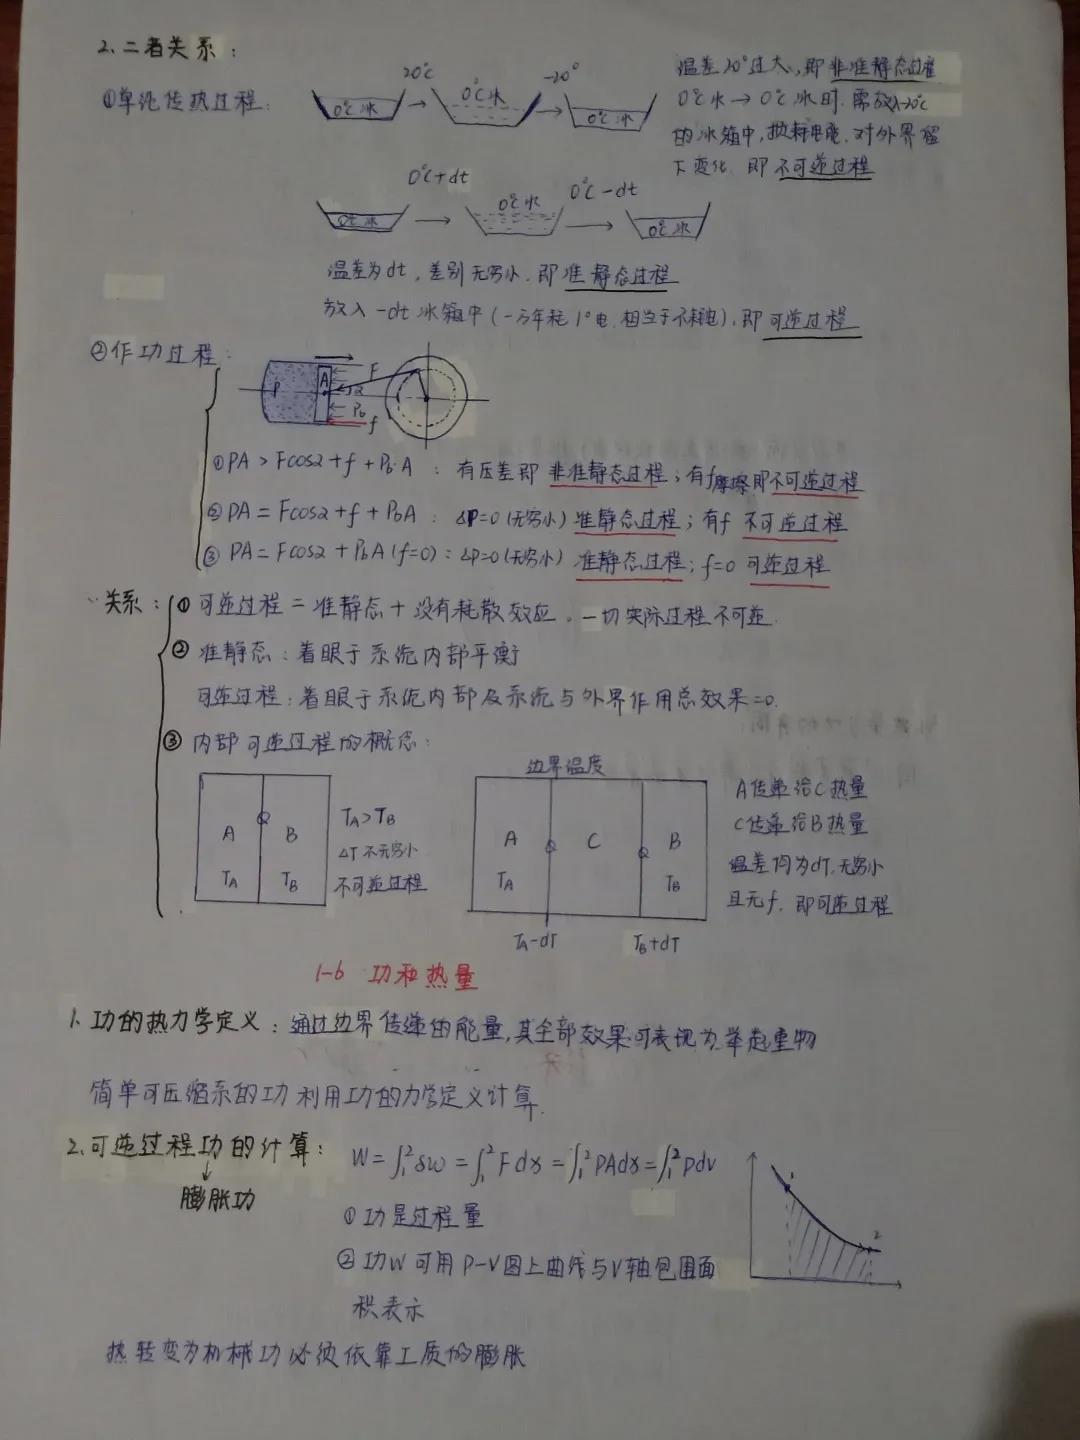 2. 二者关系：
①单纯传热过程：
0℃冰 20℃ 0℃水 -20° 0℃冰
温差20°过大，即非准静态过程
0℃水→0℃冰时．需放入-20℃
的冰箱中，损耗电能．对外界留
下变化．即不可逆过程
0℃+dt 0℃-dt
0℃冰 0℃水 0℃冰
温差为dt，差别无穷小．即准静态过程
放入-dt冰箱中(一万年耗1°电．相当于不耗电)，即可逆过程
②作功过程：
P A F α P₀ f
①PA > Fcosα+f+P₀A：有压差即非准静态过程；有f摩擦即不可逆过程
②PA = Fcosα+f+P₀A：△P=0(无穷小)准静态过程；有f 不可逆过程
③PA= Fcosα+P₀A(f=0)：△P=0(无穷小)准静态过程；f=0 可逆过程
∴关系：①可逆过程 = 准静态+没有耗散效应。一切实际过程不可逆．
②准静态：着眼于系统内部平衡
可逆过程：着眼于系统内部及系统与外界作用总效果=0.
③内部可逆过程的概念：
边界温度
A B
TA TB
TA>TB
△T不无穷小
不可逆过程
A C B
TA TB
TA-dT TB+dT
A传递给C热量
C传递给B热量
温差均为dT，无穷小
且无f．即可逆过程
1-6 功和热量
1. 功的热力学定义：通过边界传递的能量，其全部效果可表现为举起重物
简单可压缩系的功利用功的力学定义计算．
2.可逆过程功的计算： W=∫₁²δw =∫₁²Fdx =∫₁²PAdx=∫₁²pdv
↓
膨胀功
1
2
①功是过程量
②功W可用P-V图上曲线与V轴包围面
积表示
热转变为机械功必须依靠工质的膨胀